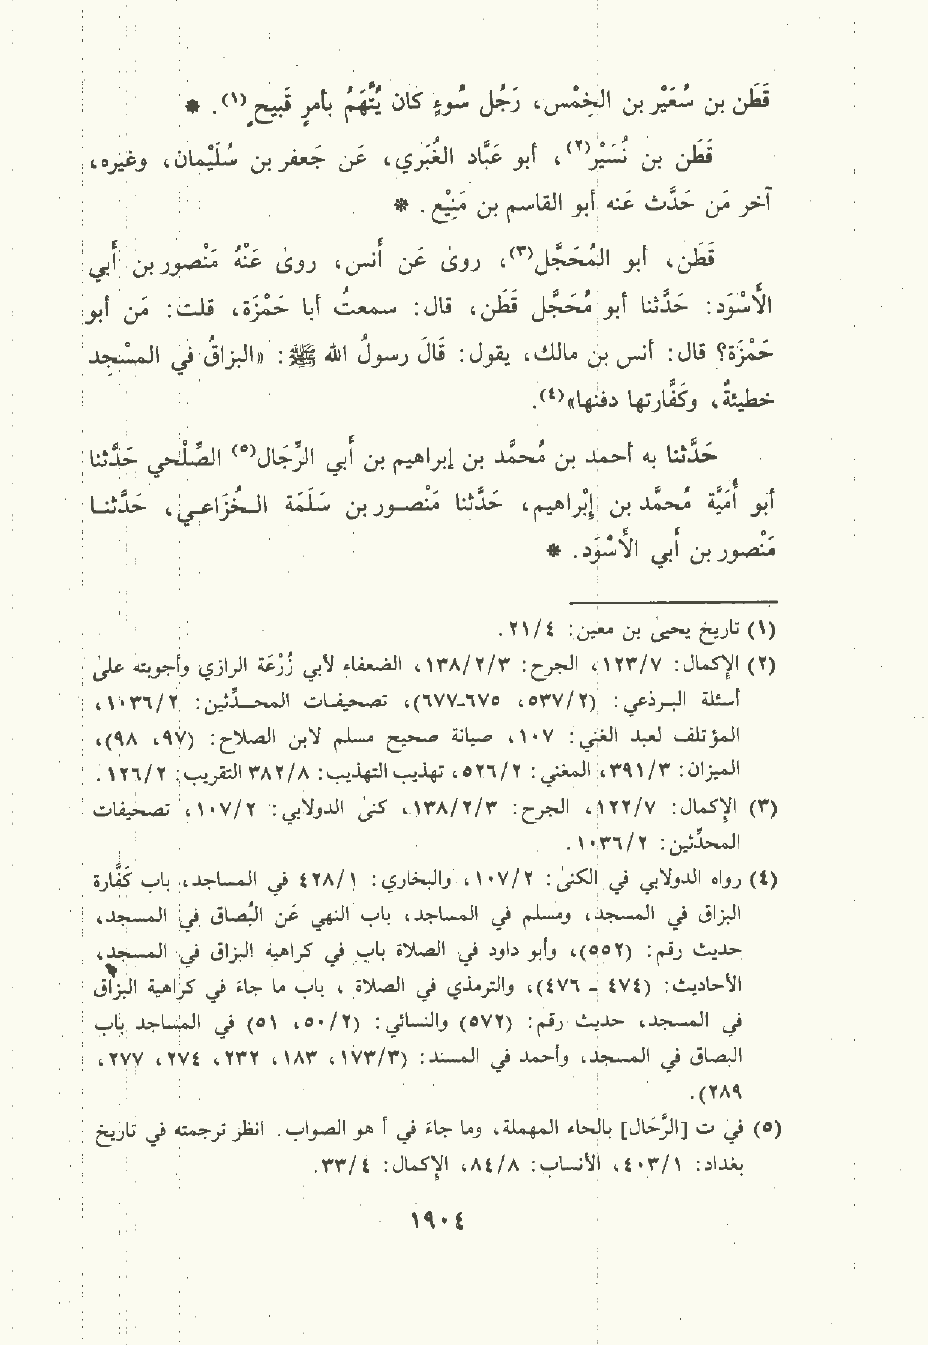 قَطَن بن سُعَيْر بن الخِمْس، رَجُل سُوءٍ كان يُتَّهَمُ بأمرٍ قَبيحٍ(١). *
قَطَن بن نُسَيْر(٢)، أبو عَبَّاد الغُبَري، عَن جَعفر بن سُلَيْمان، وغيره،
آخر مَن حَدَّث عَنه أبو القاسم بن مَنِيْع. *
قَطَن، أبو المُحَجَّل(٣)، روىٰ عَن أَنس، وروىٰ عَنْهُ مَنْصور بن أَبي
الأَسْوَد: حَدَّثنا أبو مُحَجَّل قَطَن، قال: سمعتُ أبا حَمْزَة، قلت: مَن أبو
حَمْزَة؟ قال: أنس بن مالك، يقول: قَالَ رسولُ الله ﷺ: «البزاقُ في المسْجِد
خطيئةٌ، وكَفَّارتها دفنها»(٤).
حَدَّثنا به أحمد بن مُحمَّد بن إبراهيم بن أَبي الرِّجَال(٥) الصِّلْحي حَدَّثنا
أبو أُمَيَّة مُحمَّد بن إِبْراهيم، حَدَّثنا مَنْصور بن سَلَمَة الخُزَاعي، حَدَّثنا
مَنْصور بن أَبي الأَسْوَد. *
(١) تاريخ يحيىٰ بن معين: ٢١/٤.
(٢) الإكمال: ١٢٣/٧، الجرح: ١٣٨/٢/٣، الضعفاء لأبي زُرْعَة الرازي وأجوبته علىٰ
أسئلة البرذعي: (٥٣٧/٢، ٦٧٥-٦٧٧)، تصحيفات المحدِّثين: ١٠٣٦/٢،
المؤتلف لعبد الغني: ١٠٧، صيانة صحيح مسلم لابن الصلاح: (٩٧، ٩٨)،
الميزان: ٣٩١/٣، المغني: ٥٢٦/٢، تهذيب التهذيب: ٣٨٢/٨ التقريب: ١٢٦/٢.
(٣) الإكمال: ١٢٢/٧، الجرح: ١٣٨/٢/٣، كنىٰ الدولابي: ١٠٧/٢، تصحيفات
المحدِّثين: ١٠٣٦/٢.
(٤) رواه الدولابي في الكنىٰ: ١٠٧/٢، والبخاري: ٤٢٨/١ في المساجد، باب كَفَّارة
البزاق في المسجد، ومسلم في المساجد، باب النهي عَن البُصاق في المسجد،
حديث رقم: (٥٥٢)، وأبو داود في الصلاة باب في كراهية البزاق في المسجد،
الأحاديث: (٤٧٤ - ٤٧٦)، والترمذي في الصلاة ، باب ما جاء في كراهية البزاق
في المسجد، حديث رقم: (٥٧٢) والنسائي: (٥٠/٢، ٥١) في المساجد باب
البصاق في المسجد، وأحمد في المسند: (١٧٣/٣، ١٨٣، ٢٣٢، ٢٧٤، ٢٧٧،
٢٨٩).
(٥) في ت [الرَّحَال] بالحاء المهملة، وما جاء في أ هو الصواب. انظر ترجمته في تاريخ
بغداد: ٤٠٣/١، الأنساب: ٨٤/٨، الإكمال: ٣٣/٤.
١٩٠٤